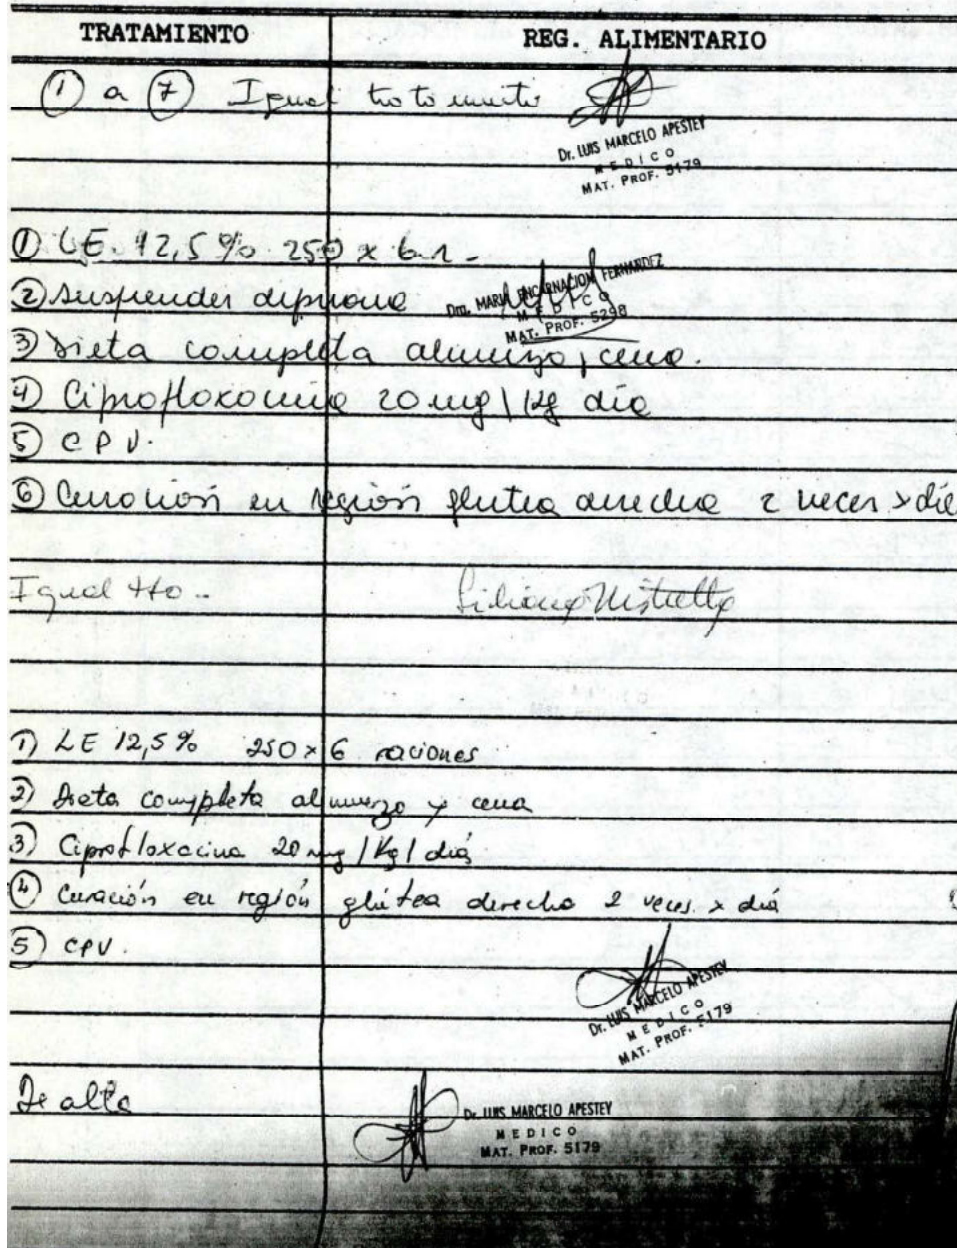 TRATAMIENTO REG. ALIMENTARIO
① a ⑦ Igual tratamiento
Dr. LUIS MARCELO APESTEY
MEDICO
MAT. PROF. 5179
① LE. 12,5 % 250 x 6 r.
② Suspender dipirona
Dra. MARIA ENCARNACION FERNANDEZ
MEDICO
MAT. PROF. 5298
③ Dieta completa almuerzo y cena.
④ Ciprofloxacina 20 mg/kg día
⑤ CPV.
⑥ Curación en región glútea derecha 2 veces x día
Igual tto.
1) LE 12,5 % 250 x 6 raciones
2) Dieta completa almuerzo y cena
3) Ciprofloxacina 20 mg/Kg/día
④ Curación en región glútea derecha 2 veces x día
5) CPV.
Dr. LUIS MARCELO APESTEY
MEDICO
MAT. PROF. 5179
De alta
Dr. LUIS MARCELO APESTEY
MEDICO
MAT. PROF. 5179